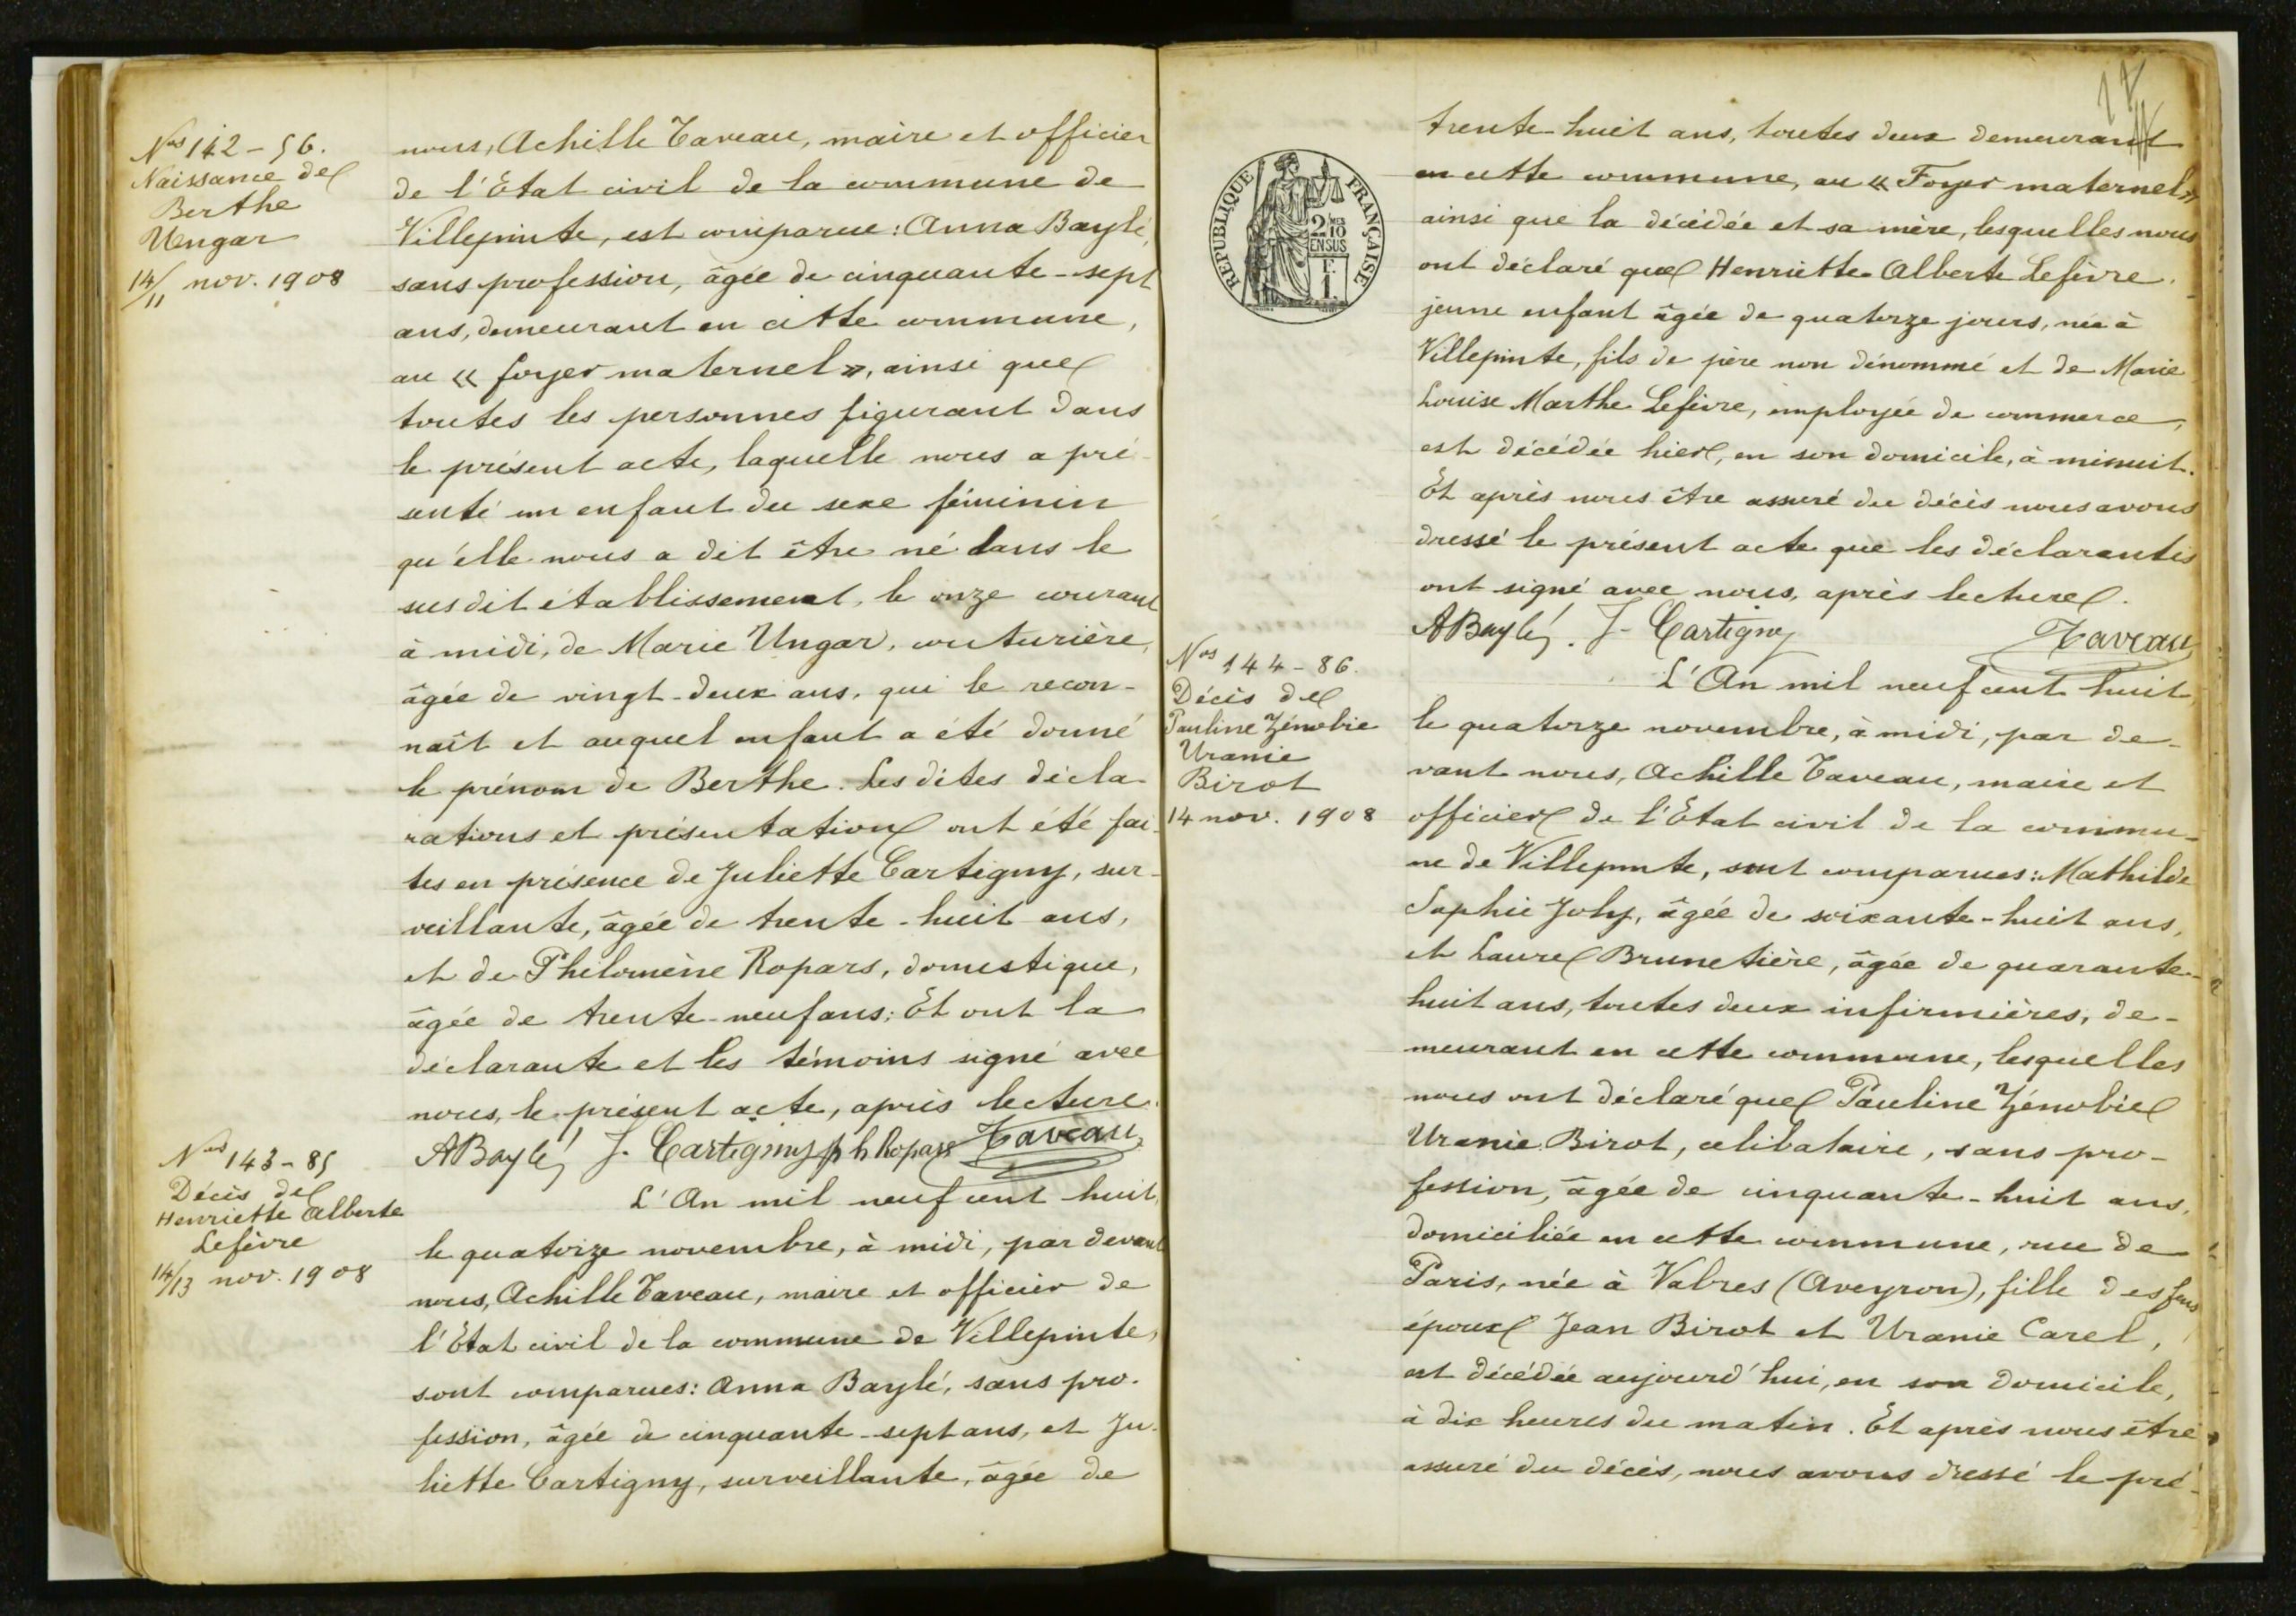 Nos 142-56.
Naissance de
Berthe
Ungar
14/11 nov. 1908
nous, Achille Taveau, maire et officier
de l'Etat civil de la commune de
Villepinte, est comparue : Anna Baylé,
sans profession, âgée de cinquante-sept
ans, demeurant en cette commune,
au « foyer maternel », ainsi que
toutes les personnes figurant dans
le présent acte, laquelle nous a pré-
senté un enfant du sexe féminin
qu'elle nous a dit être né dans le
susdit établissement, le onze courant
à midi, de Marie Ungar, couturière,
âgée de vingt-deux ans, qui le recon-
naît et auquel enfant a été donné
le prénom de Berthe. Lesdites décla-
rations et présentation ont été fai-
tes en présence de Juliette Cartigny, sur-
veillante, âgée de trente-huit ans,
et de Philomène Ropars, domestique,
âgée de trente-neuf ans; Et ont la
déclarante et les témoins signé avec
nous, le présent acte, après lecture.
ABaylé J. Cartigny Ph Ropars Taveau
Nos 143-85
Décès de
Henriette Alberte
Lefèvre
14/13 nov. 1908
L'An mil neuf cent huit,
le quatorze novembre, à midi, par devant
nous, Achille Taveau, maire et officier de
l'Etat civil de la commune de Villepinte,
sont comparues : Anna Baylé, sans pro-
fession, âgée de cinquante-sept ans, et Ju-
liette Cartigny, surveillante, âgée de
RÉPUBLIQUE FRANÇAISE
2 10 MES
EN SUS
F.
1.
trente-huit ans, toutes deux demeurant
en cette commune, au « Foyer maternel »
ainsi que la décédée et sa mère, lesquelles nous
ont déclaré que Henriette Alberte Lefèvre,
jeune enfant âgée de quatorze jours, née à
Villepinte, fils de père non dénommé et de Marie
Louise Marthe Lefèvre, employée de commerce,
est décédée hier, en son domicile, à minuit.
Et après nous être assuré du décès nous avons
dressé le présent acte que les déclarantes
ont signé avec nous, après lecture.
ABaylé. J. Cartigny Taveau
Nos 144-86.
Décès de
Pauline Zénobie
Uranie
Birot
14 nov. 1908
L'An mil neuf cent huit,
le quatorze novembre, à midi, par de-
vant nous, Achille Taveau, maire et
officier de l'Etat civil de la commu-
ne de Villepinte, sont comparues : Mathilde
Sophie Joly, âgée de soixante-huit ans,
et Laure Brunetière, âgée de quarante-
huit ans, toutes deux infirmières, de-
meurant en cette commune, lesquelles
nous ont déclaré que Pauline Zénobie
Uranie Birot, célibataire, sans pro-
fession, âgée de cinquante-huit ans,
domiciliée en cette commune, rue de
Paris, née à Vabres (Aveyron), fille des feus
époux Jean Birot et Uranie Carel,
est décédée aujourd'hui, en son domicile,
à dix heures du matin. Et après nous être
assuré du décès, nous avons dressé le pré-